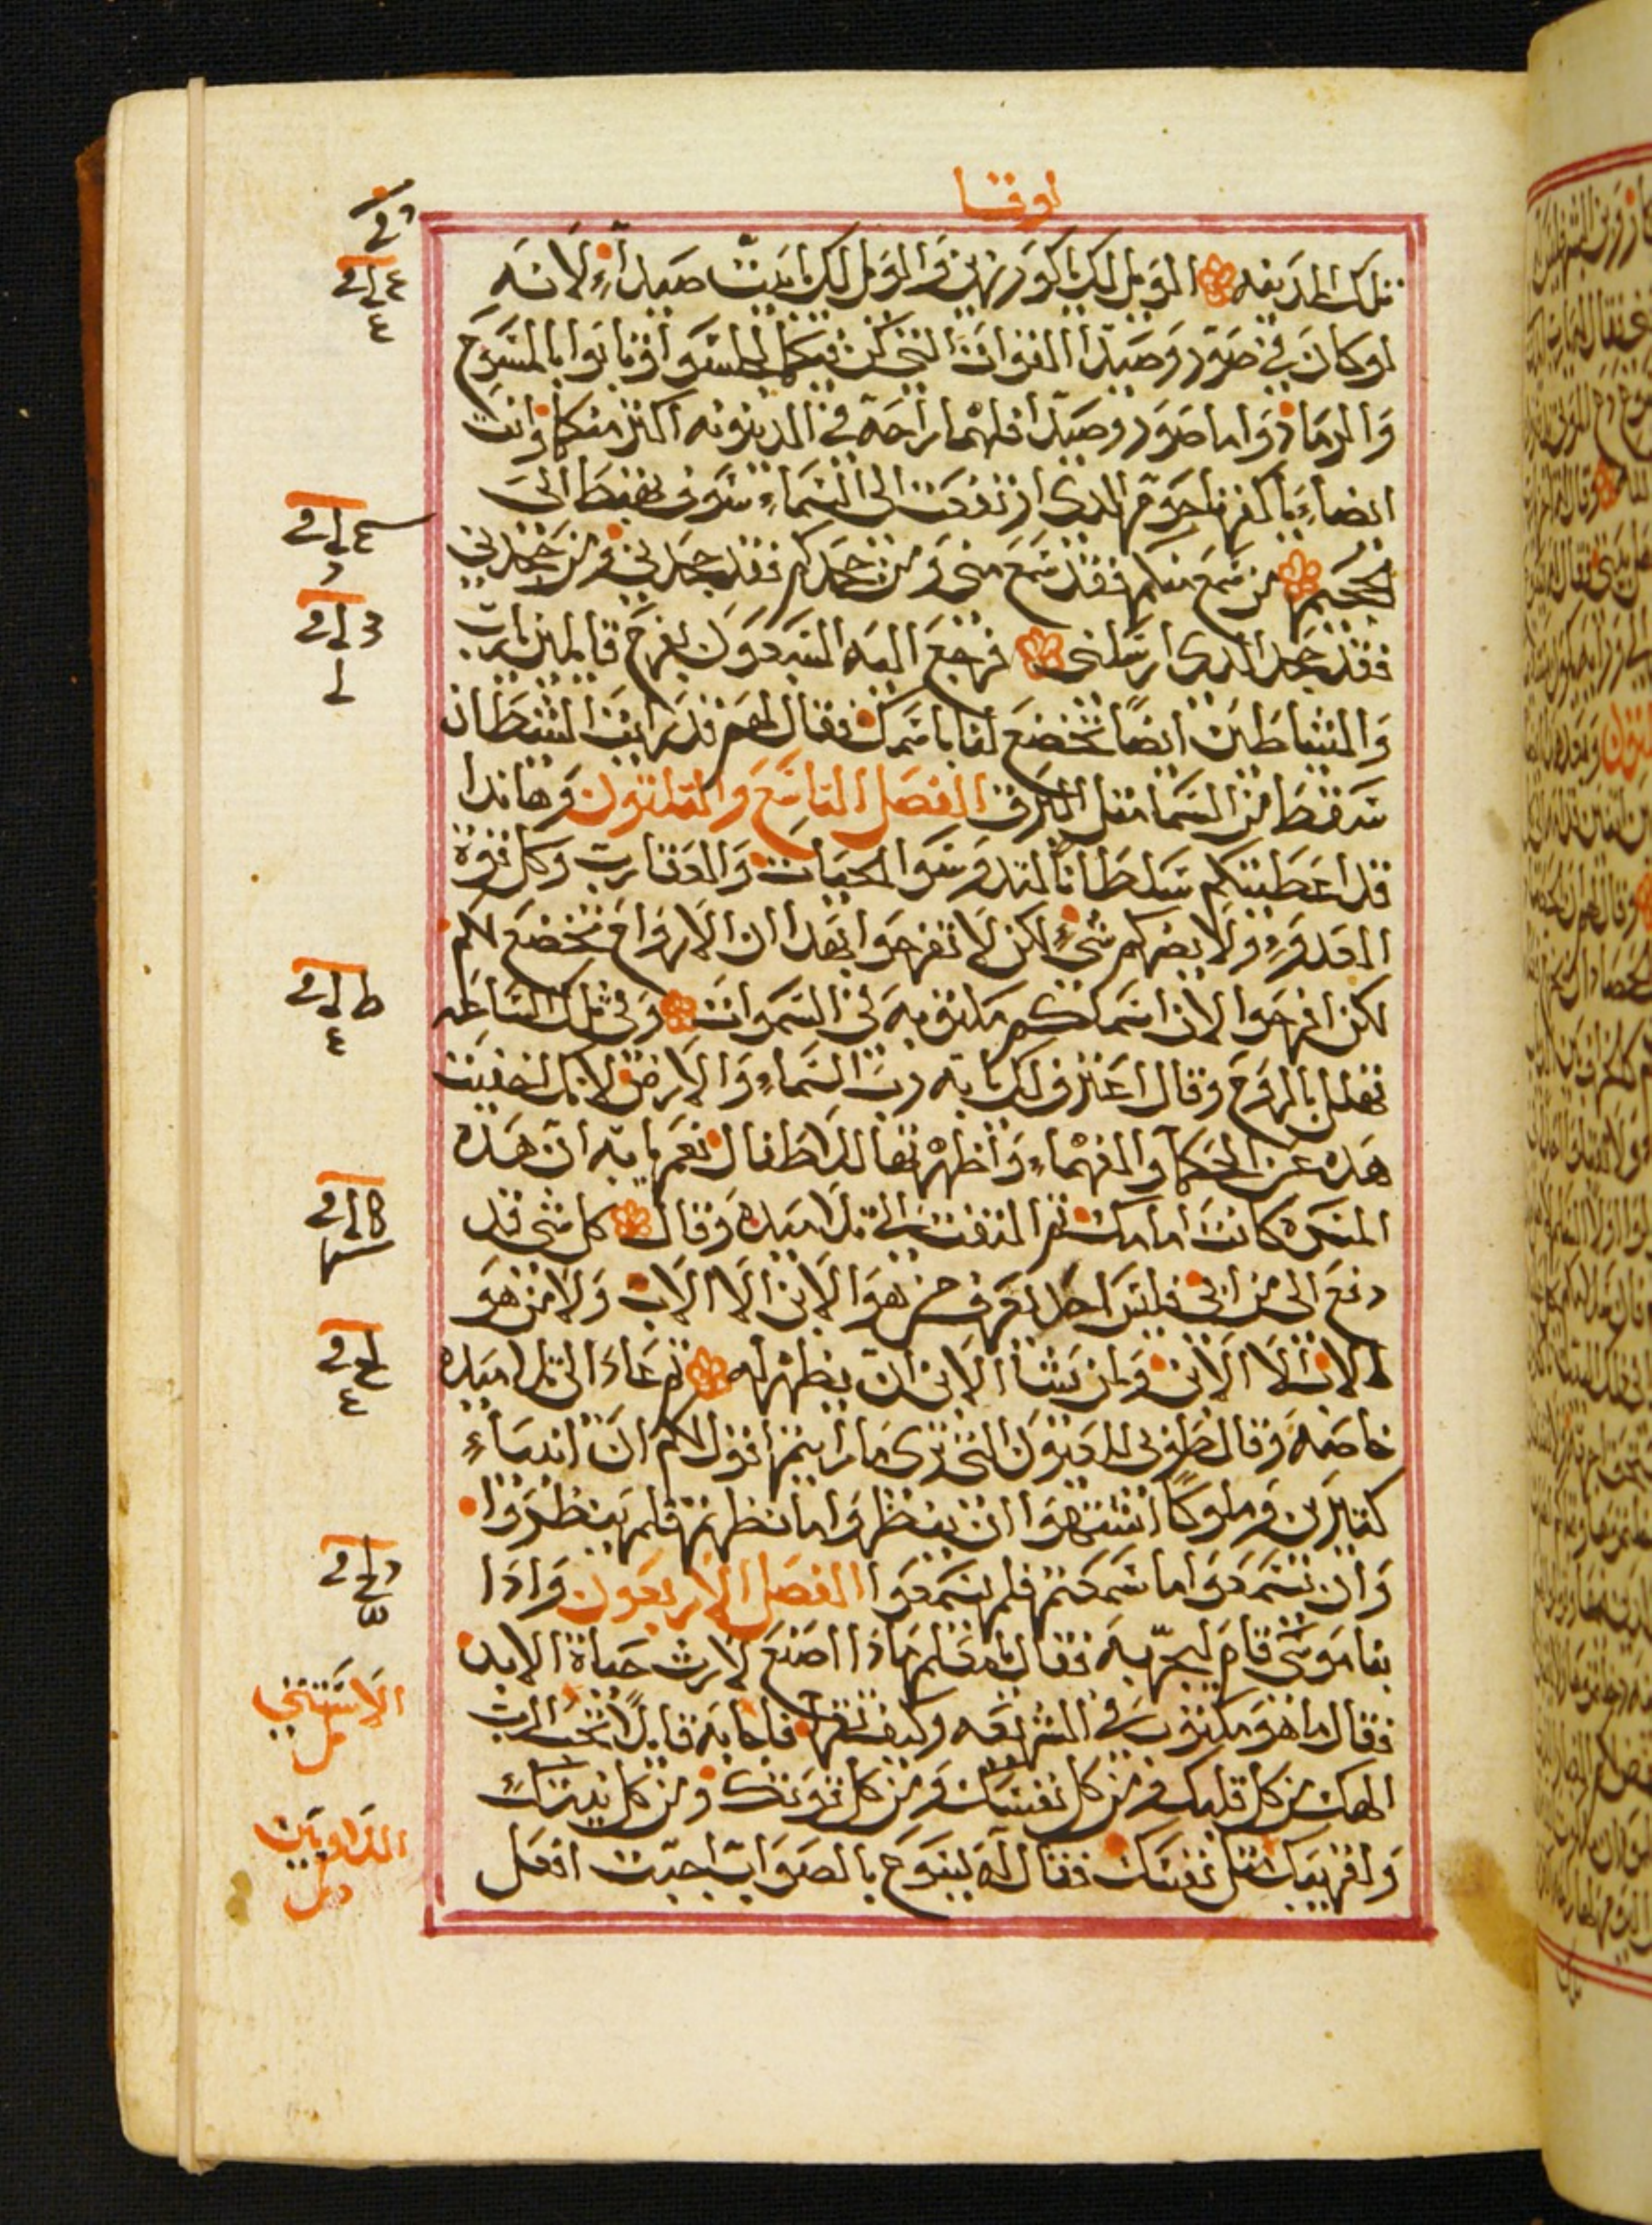 لوقا
تلك المدينه الويل لك يا كورزين والويل لك يا بيت صيدا لانه
لو كان في صور وصيدا القوات التي كن فيكما لجلسوا وتابوا بالمسوح
والرماد واما صور وصيدا فلهما راحة في الدينونه اكثر منكما وانت
ايضاء يا كفرناحوم الذي ارتفعت الى السماء سوف تهبط الى
الجحيم من سمع منكم فقد سمع مني ومن جحدكم فقد جحدني ومن جحدني
فقد جحد الذي ارسلني فرجع اليه السبعون بفرح قايلين يارب
والشياطين ايضا تخضع لنا باسمك فقال لهم قد رايت الشيطان
سقط من السما مثل البرق الفصل التاسع والثلثون وهاندا
قد اعطيتكم سلطانا لتدوسوا الحيات والعقارب وكل قوة
العدو ولا يضركم شيء لكن لا تفرحوا بهدا ان الارواح تخضع لكم
لكن افرحوا لان اسماكم مكتوبه في السموات وفي تلك الساعه
تهلل بالروح وقال اعترف لك يا ابه رب السماء والارض لانك اخفيت
هده عن الحكما والفهماء واظهرتها للاطفال نعم يا ابه ان هده
المسره كانت امامك ثم التفت الى تلاميده وقال كل شي قد
دفع الى من ابي فليس احد يعرف من هو الابن الا الاب ولا من هو
الاب الا الابن ومن يشا الابن ان يظهر له ثم عاد الى تلاميده
خاصه وقال طوبى للعيون التي ترى ما رايتم اقول لكم ان انبياء
كثيرين وملوكا اشتهوا ان ينظروا ما نظرتم فلم ينظروا
وان يسمعوا ما سمعتم فلم يسمعوا الفصل الاربعون واذا
بناموسي قام ليجربه فقال يا معلم ماذا اصنع لارث حياة الابد
فقال ما هو مكتوب في الشريعه وكيف تقرا فاجابه قايلا تحب الرب
الهك من كل قلبك ومن كل نفسك ومن كل قوتك ومن كل نيتك
ولقريبك مثل نفسك فقال له يسوع بالصواب اجبت افعل
الاستثني
اللاويين